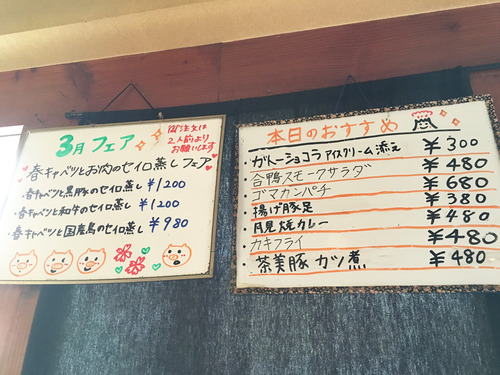 3月フェア
ご注文は
2人前より
お願いします
春キャベツとお肉のセイロ蒸しフェア
・春キャベツと黒豚のセイロ蒸し ¥1200
・春キャベツと和牛のセイロ蒸し ¥1200
・春キャベツと国産鳥のセイロ蒸し ¥980
本日のおすすめ
・ガトーショコラ アイスクリーム添え ¥300
合鴨スモークサラダ ¥480
ゴマカンパチ ¥680
・揚げ豚足 ¥380
月見焼カレー ¥480
・カキフライ ¥480
茶美豚カツ煮 ¥480